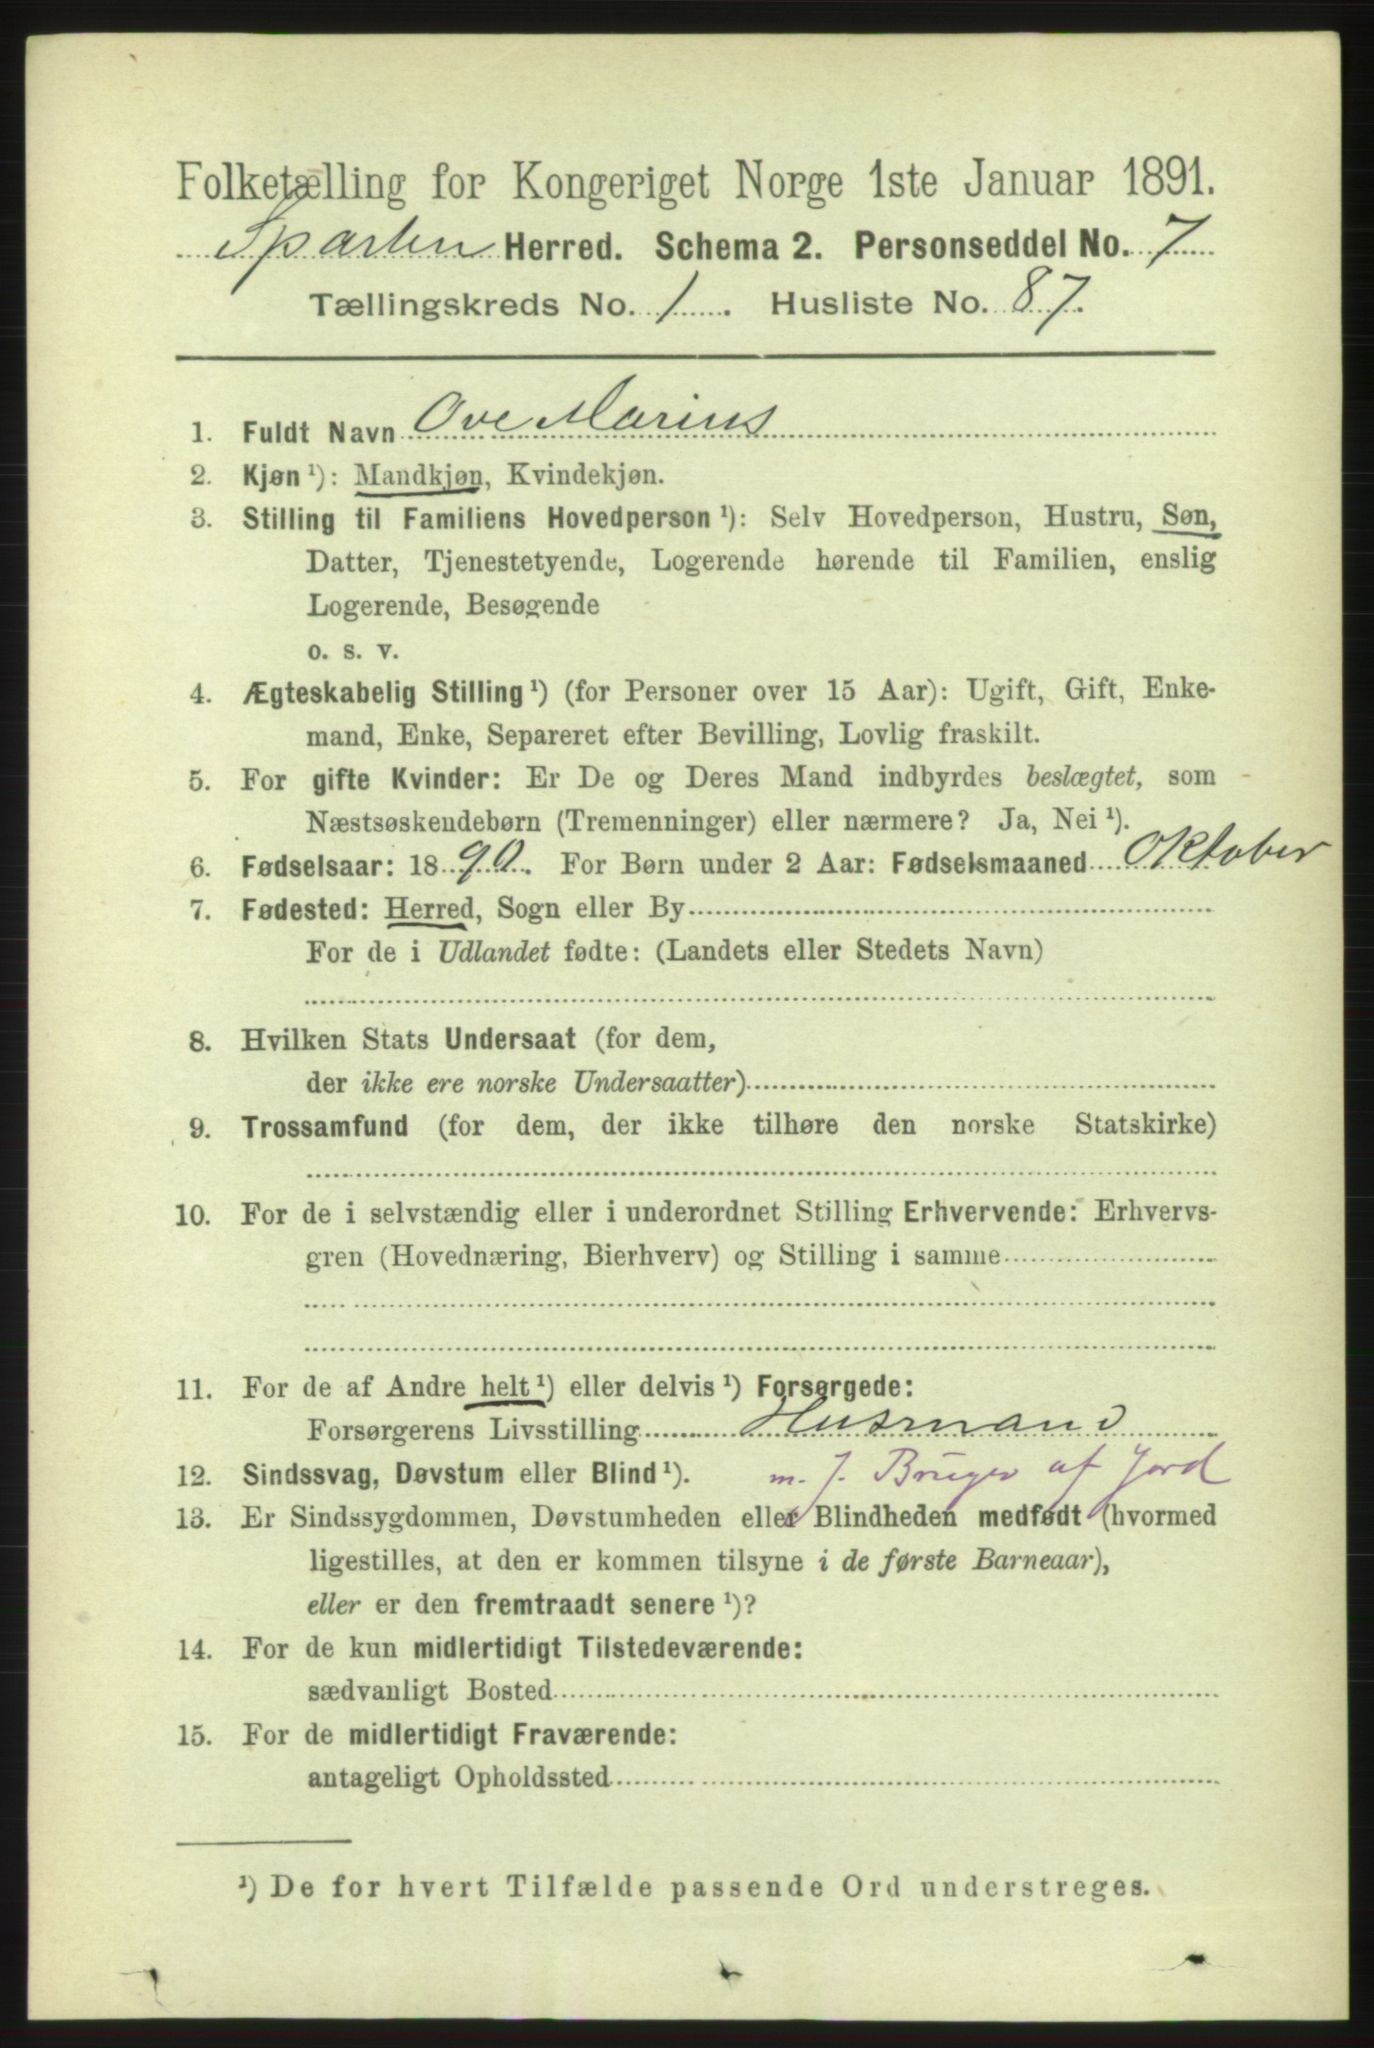 Folketælling for Kongeriget Norge 1ste Januar 1891.
Sparbu Herred. Schema 2. Personseddel No. 7
Tællingskreds No. 1. Husliste No. 87.
1. Fuldt Navn Ove Marius
2. Kjøn ¹): Mandkjøn, Kvindekjøn.
3. Stilling til Familiens Hovedperson ¹): Selv Hovedperson, Hustru, Søn,
Datter, Tjenestetyende, Logerende hørende til Familien, enslig
Logerende, Besøgende
o. s. v.
4. Ægteskabelig Stilling ¹) (for Personer over 15 Aar): Ugift, Gift, Enke-
mand, Enke, Separeret efter Bevilling, Lovlig fraskilt.
5. For gifte Kvinder: Er De og Deres Mand indbyrdes beslægtet, som
Næstsøskendebørn (Tremenninger) eller nærmere? Ja, Nei ¹).
6. Fødselsaar: 1890. For Børn under 2 Aar: Fødselsmaaned Oktober
7. Fødested: Herred, Sogn eller By
For de i Udlandet fødte: (Landets eller Stedets Navn)
8. Hvilken Stats Undersaat (for dem,
der ikke ere norske Undersaatter)
9. Trossamfund (for dem, der ikke tilhøre den norske Statskirke)
10. For de i selvstændig eller i underordnet Stilling Erhvervende: Erhvervs-
gren (Hovednæring, Bierhverv) og Stilling i samme
11. For de af Andre helt ¹) eller delvis ¹) Forsørgede:
Forsørgerens Livsstilling Husmand
12. Sindssvag, Døvstum eller Blind ¹). m. J. Bruger af Jord
13. Er Sindssygdommen, Døvstumheden eller Blindheden medfødt (hvormed
ligestilles, at den er kommen tilsyne i de første Barneaar),
eller er den fremtraadt senere ¹)?
14. For de kun midlertidigt Tilstedeværende:
sædvanligt Bosted
15. For de midlertidigt Fraværende:
antageligt Opholdssted
¹) De for hvert Tilfælde passende Ord understreges.